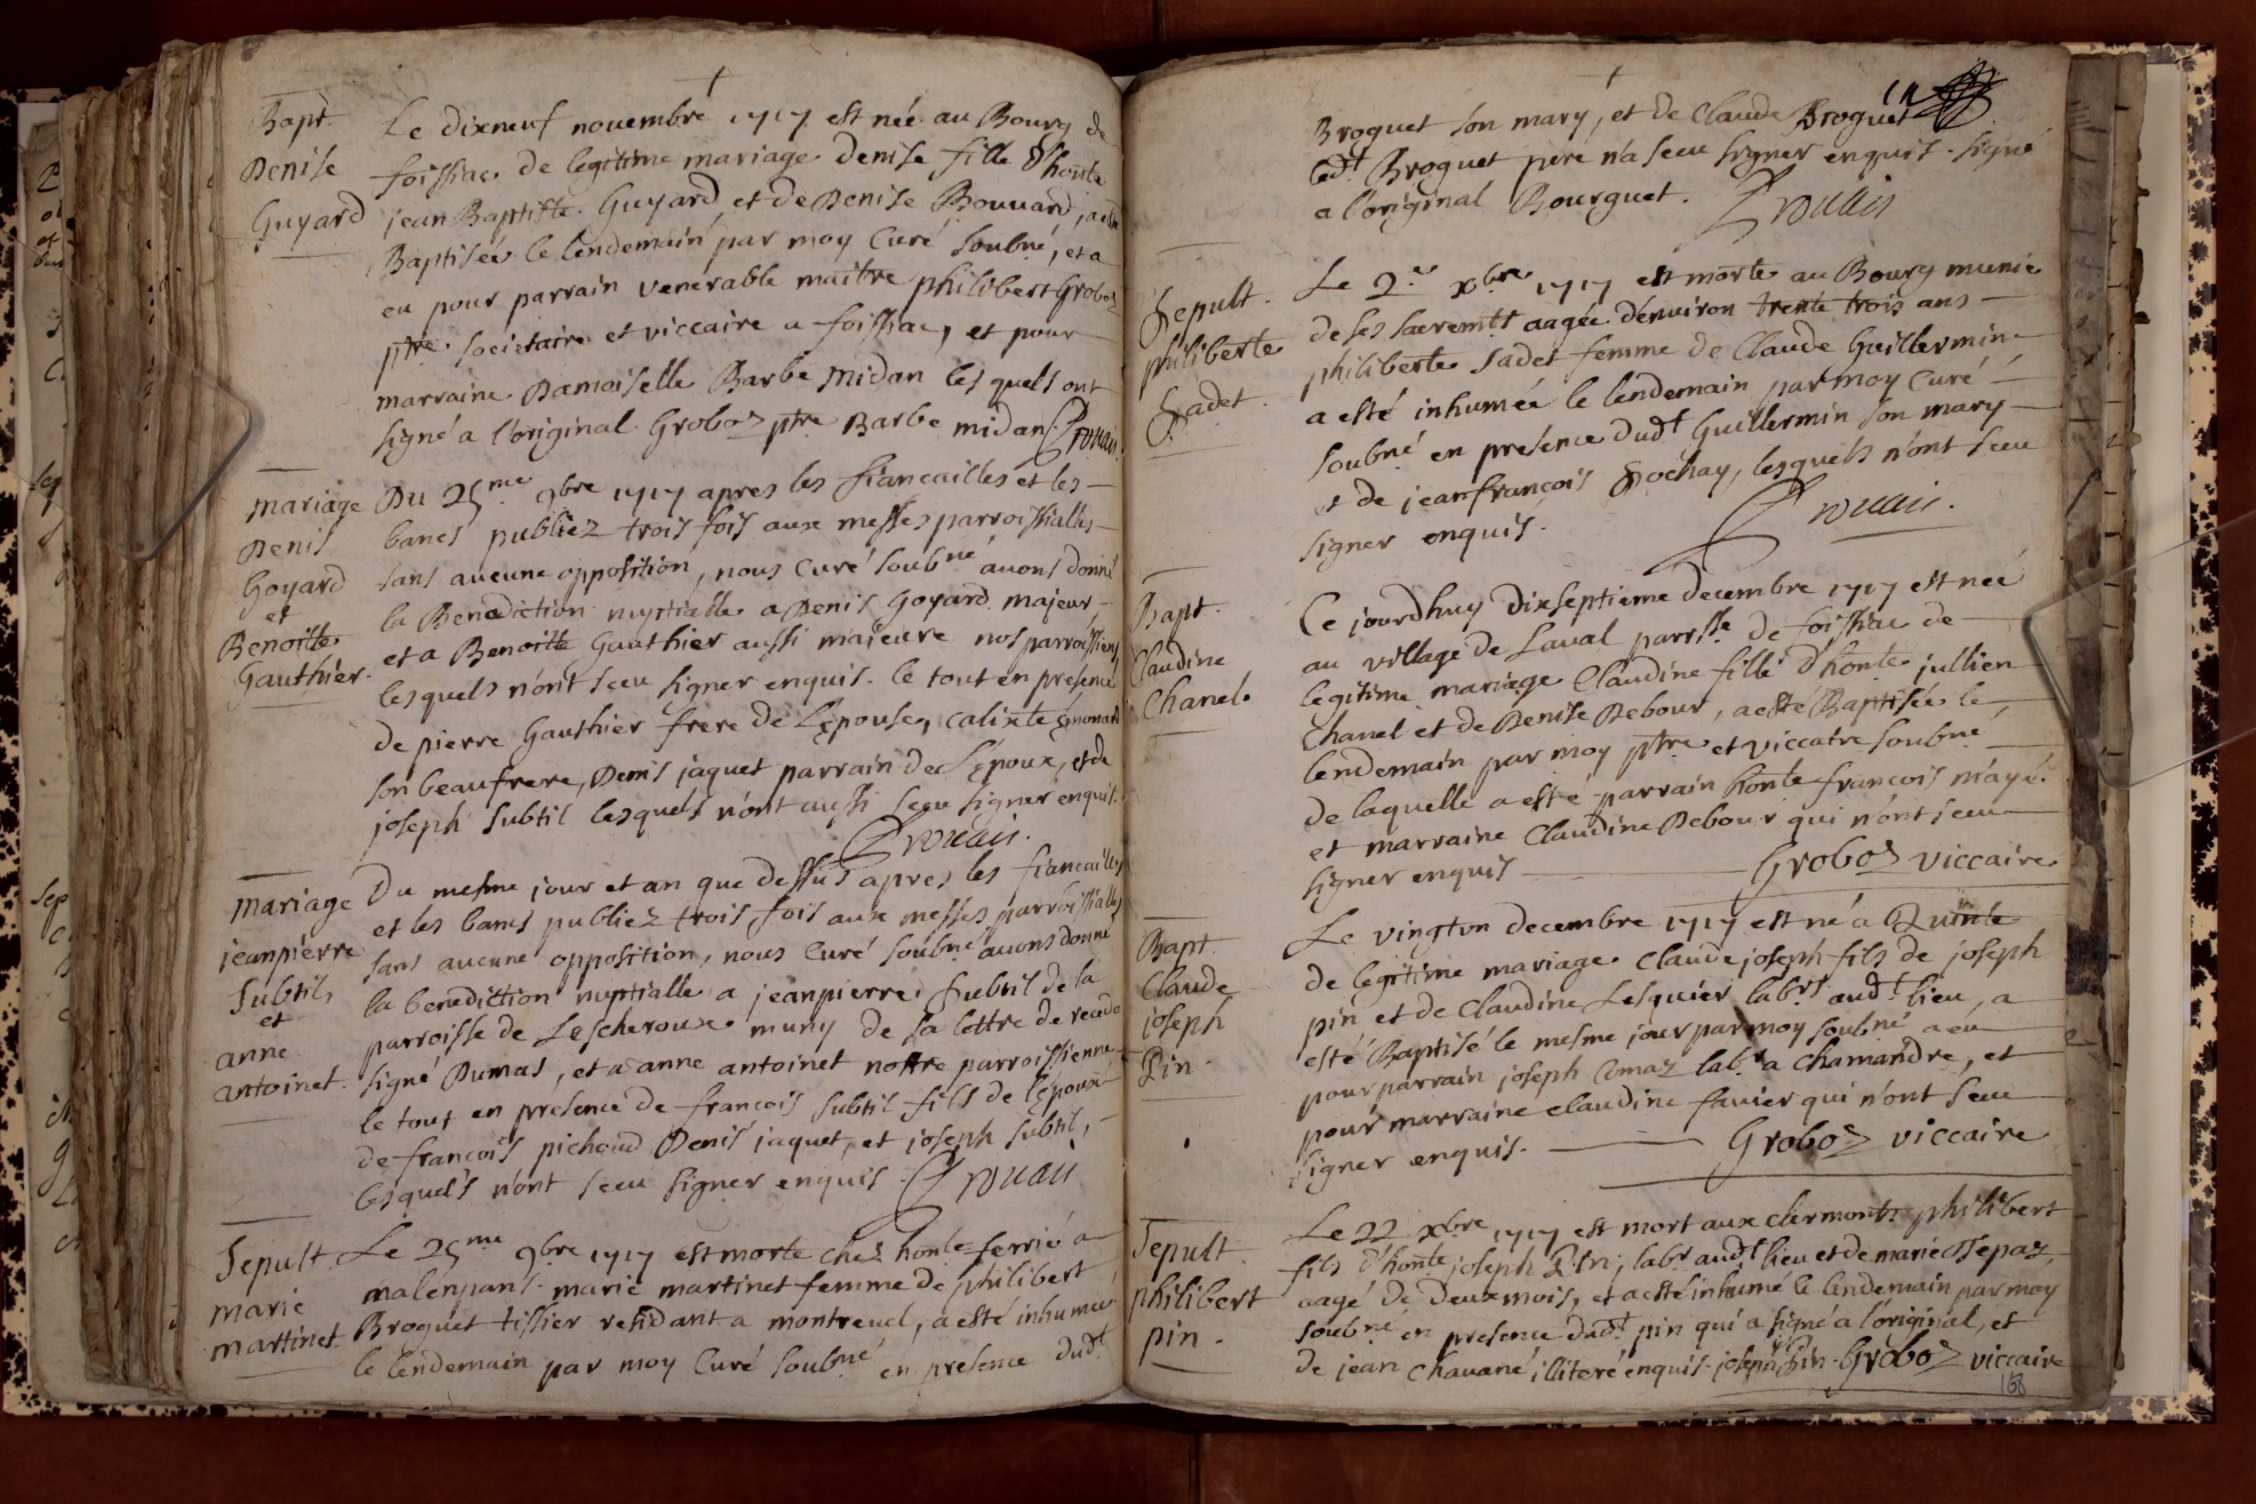 Bapt.
Denise
Guyard
Le dixneuf nouembre 1717 est née au Bourg de
foissiac de legitime mariage denise fille d'honte
jean Baptiste Guyard et de Denise Bouuard, a esté
Baptisée le lendemain par moy Curé soubné, et a
eu pour parrain venerable maitre philibert Groboz
ptre societaire et viccaire a foissiac, et pour
marraine Damoiselle Barbe midan les quels ont
signé a l'original Groboz ptre Barbe midan
mariage
Denis
Goyard
et
Benoitte
Gauthier.
Du 25me 9bre 1717 apres les fiancailles et les
bancs publiez trois fois aux messes parroissialles
sans aucune opposition, nous Curé soubné auons donné
la Benediction nuptialle a Denis Goyard majeur,
et a Benoitte Gauthier aussi majeure nos parroissiens
lesquels n'ont sceu signer enquis. le tout en presence
de pierre Gauthier frere de L'epouse, calixte
son beaufrere, Denis jaquet parrain de L'epoux, et de
joseph subtil lesquels n'ont aussi sceu signer enquis.
mariage
jeanpierre
Subtil
et
anne
antoinet.
Du mesme jour et an que dessus apres les fiancailles
et les bancs publiez trois fois aux messes parroissialles
sans aucune opposition, nous Curé soubné auons donné
la benediction nuptialle a jeanpierre subtil de la
parroisse de Lescheroux muny de sa lettre de recedo
signé Dumas, et a anne antoinet nostre parroissienne
le tout en presence de francois subtil fils de l'epoux
de francois pichoud Denis jaquet, et joseph subtil,
lesquels n'ont sceu signer enquis.
Sepult.
marie
martinet.
Le 25me 9bre 1717 est morte chez honte ferrie a
malenpans marie martinet femme de philibert
Broquet tissier residant a montreuel, a esté inhumée
le lendemain par moy Curé soubné en presence dudt
Broquet son mary, et de Claude Broquet
ledt Broquet pere n'a sceu signer enquis. signé
a l'original Bourguet.
Sepult.
philiberte
Sadet.
Le 2e xbre 1717 est morte au Bourg munie
de ses sacremts aagée d'enuiron trente trois ans
philiberte sadet femme de Claude Guillermin
a esté inhumée le lendemain par moy Curé
soubné en presence dudt Guillermin son mary
et de jeanfrancois Sochay, lesquels n'ont sceu
signer enquis.
Bapt.
Claudine
Chanel
Ce jourdhuy dixseptieme decembre 1717 est née
au village de Laual parrsse de foissiac de
legitime mariage Claudine fille d'honte jullien
Chanel et de Denise Debour, a esté Baptisée le
lendemain par moy ptre et viccaire soubné
de laquelle a esté parrain honte francois mayé
et marraine Claudine Debour qui n'ont sceu
signer enquis Groboz viccaire
Bapt.
Claude
joseph
Pin.
Le vingtvn decembre 1717 est né a Quinte
de legitime mariage Claude joseph fils de joseph
pin et de Claudine Lesquier labrs audt lieu, a
esté Baptisé le mesme jour par moy soubné a eu
pour parrain joseph Comaz labr a chamandre, et
pour marraine claudine fauier qui n'ont sceu
signer enquis. Groboz viccaire
Sepult.
philibert
pin.
Le 22 xbre 1717 est mort aux clermonts philibert
fils d'honte joseph Pin, labr audt lieu et de marie Tepaz,
aagé de deux mois, et a esté inhumé le lendemain par moy
soubné en presence dudt pin qui a signé a l'original, et
de jean Chauané illiteré enquis. joseph pin. Groboz viccaire
168